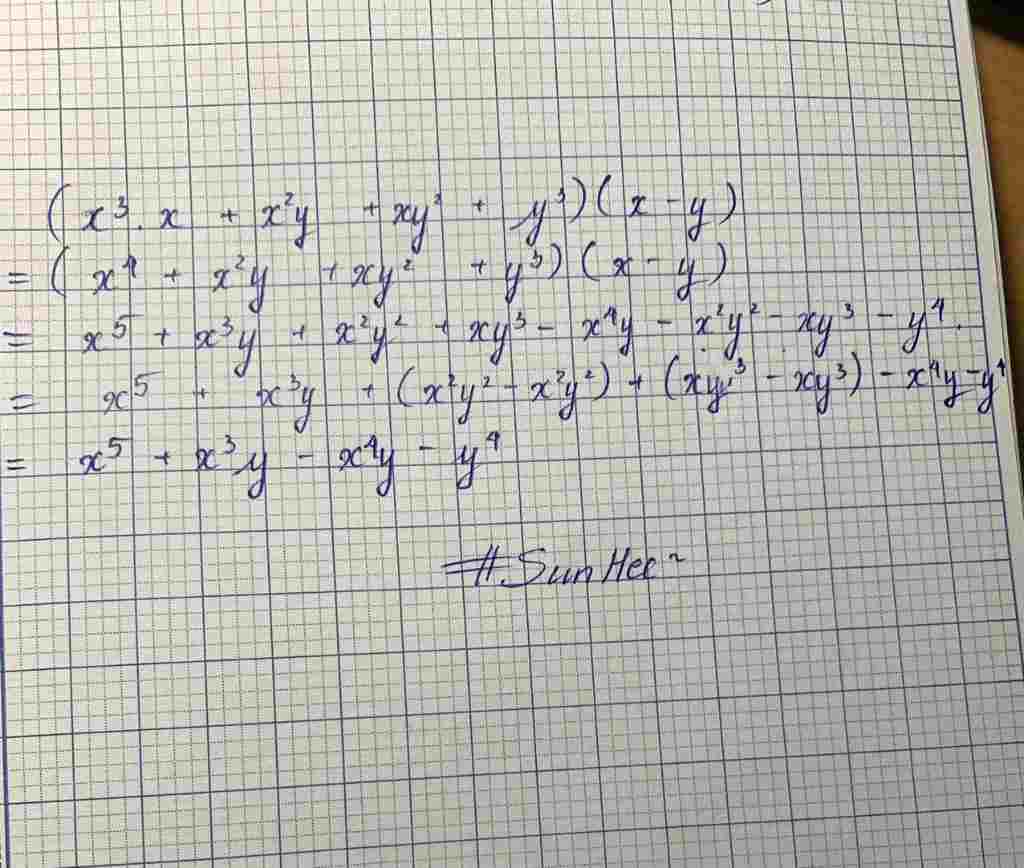 (x³.x + x²y + xy² + y³)(x - y)
= (x⁴ + x²y + xy² + y³)(x - y)
= x⁵ + x³y + x²y² + xy³ - x⁴y - x²y² - xy³ - y⁴.
= x⁵ + x³y + (x²y² - x²y²) + (xy³ - xy³) - x⁴y - y⁴
= x⁵ + x³y - x⁴y - y⁴
#SunHee~